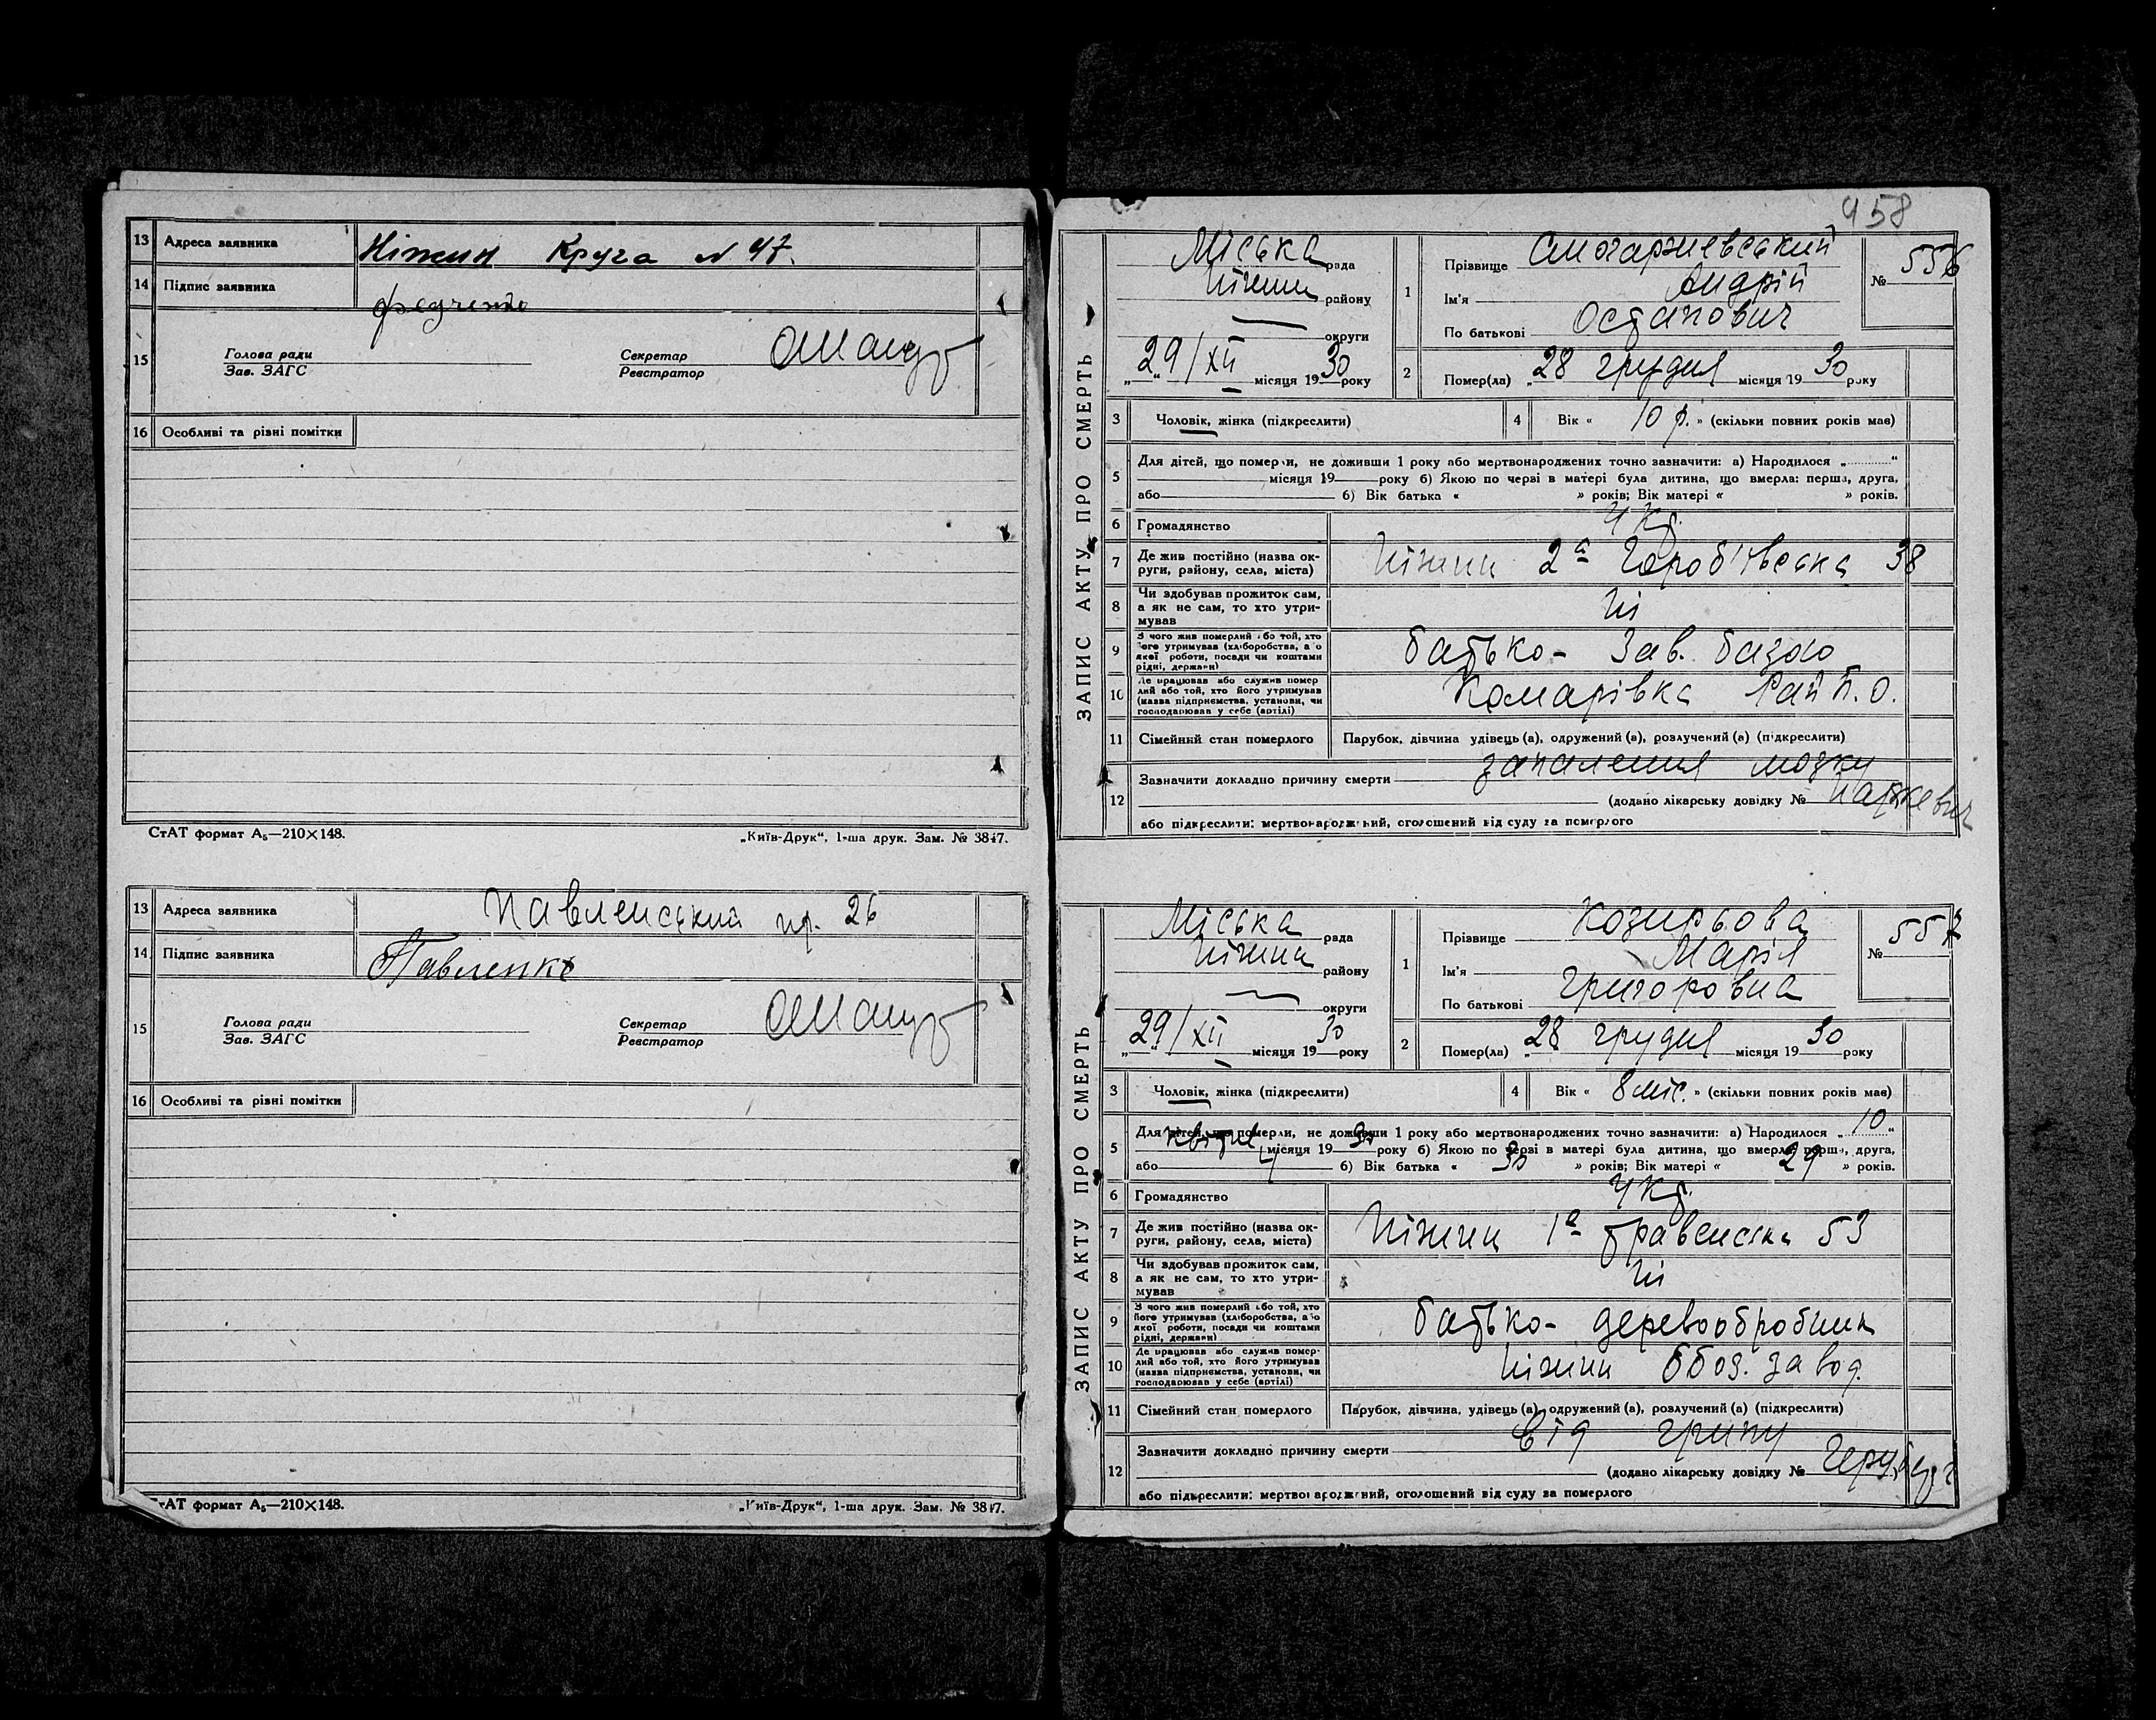 13 Адреса заявника Ніжин Круча № 47.
14 Підпис заявника Федченко
15 Голова ради Секретар
Зав. ЗАГС Реєстратор
16 Особливі та різні помітки
СтАТ формат А₅—210×148. „Київ-Друк“, 1-ша друк. Зам. № 3847.
13 Адреса заявника Павленський пр. 26
14 Підпис заявника Павленко
15 Голова ради Секретар
Зав. ЗАГС Реєстратор
16 Особливі та різні помітки
СтАТ формат А₅—210×148. „Київ-Друк“, 1-ша друк. Зам. № 3847.
958
ЗАПИС АКТУ ПРО СМЕРТЬ
Міська рада
Ніжин району
округи
„29/XII місяця 1930 року
1 Прізвище
Ім'я Андрій
По батькові Остапович
№ 556
2 Помер(ла) „28 грудня місяця 1930 року
3 Чоловік, жінка (підкреслити) 4 Вік « 10 р. » (скільки повних років має)
5 Для дітей, що померли, не доживши 1 року або мертвонароджених точно зазначити: а) Народилося „ “
місяця 19 року б) Якою по черзі в матері була дитина, що вмерла: перша, друга,
або б) Вік батька « » років; Вік матері « » років.
6 Громадянство Укр.
7 Де жив постійно (назва округи, району, села, міста) Ніжин 2а 38
8 Чи здобував прожиток сам, а як не сам, то хто утримував Ні
9 З чого жив померлий або той, хто його утримував (хліборобства, а/о якої роботи, посади чи коштами рідні, держави) батько- Зав. базою
10 Де працював або служив померлий або той, хто його утримував (назва підприємства, установи, чи господарював у себе (артілі) Комарівка Рай п.о.
11 Сімейний стан померлого Парубок, дівчина удівець (а), одружений (а), розлучений (а) (підкреслити)
12 Зазначити докладно причину смерти запалення мозку
(додано лікарську довідку №
або підкреслити: мертвонароджений, оголошений від суду за померлого
ЗАПИС АКТУ ПРО СМЕРТЬ
Міська рада
Ніжин району
округи
„29/XII місяця 1930 року
1 Прізвище Козирьова
Ім'я Марія
По батькові Григоровна
№ 557
2 Помер(ла) „28 грудня місяця 1930 року
3 Чоловік, жінка (підкреслити) 4 Вік « 8 міс. » (скільки повних років має)
5 Для дітей, що померли, не доживши 1 року або мертвонароджених точно зазначити: а) Народилося „10“
квітня місяця 1930 року б) Якою по черзі в матері була дитина, що вмерла: перша, друга,
або 4 б) Вік батька « 30 » років; Вік матері « 29 » років.
6 Громадянство Укр.
7 Де жив постійно (назва округи, району, села, міста) Ніжин 1а 53
8 Чи здобував прожиток сам, а як не сам, то хто утримував Ні
9 З чого жив померлий або той, хто його утримував (хліборобства, а/о якої роботи, посади чи коштами рідні, держави) батько- деревообробник
10 Де працював або служив померлий або той, хто його утримував (назва підприємства, установи, чи господарював у себе (артілі) Ніжин Обоз. завод.
11 Сімейний стан померлого Парубок, дівчина, удівець (а), одружений (а), розлучений (а) (підкреслити)
12 Зазначити докладно причину смерти від грипу
(додано лікарську довідку №
або підкреслити: мертвонароджений, оголошений від суду за померлого